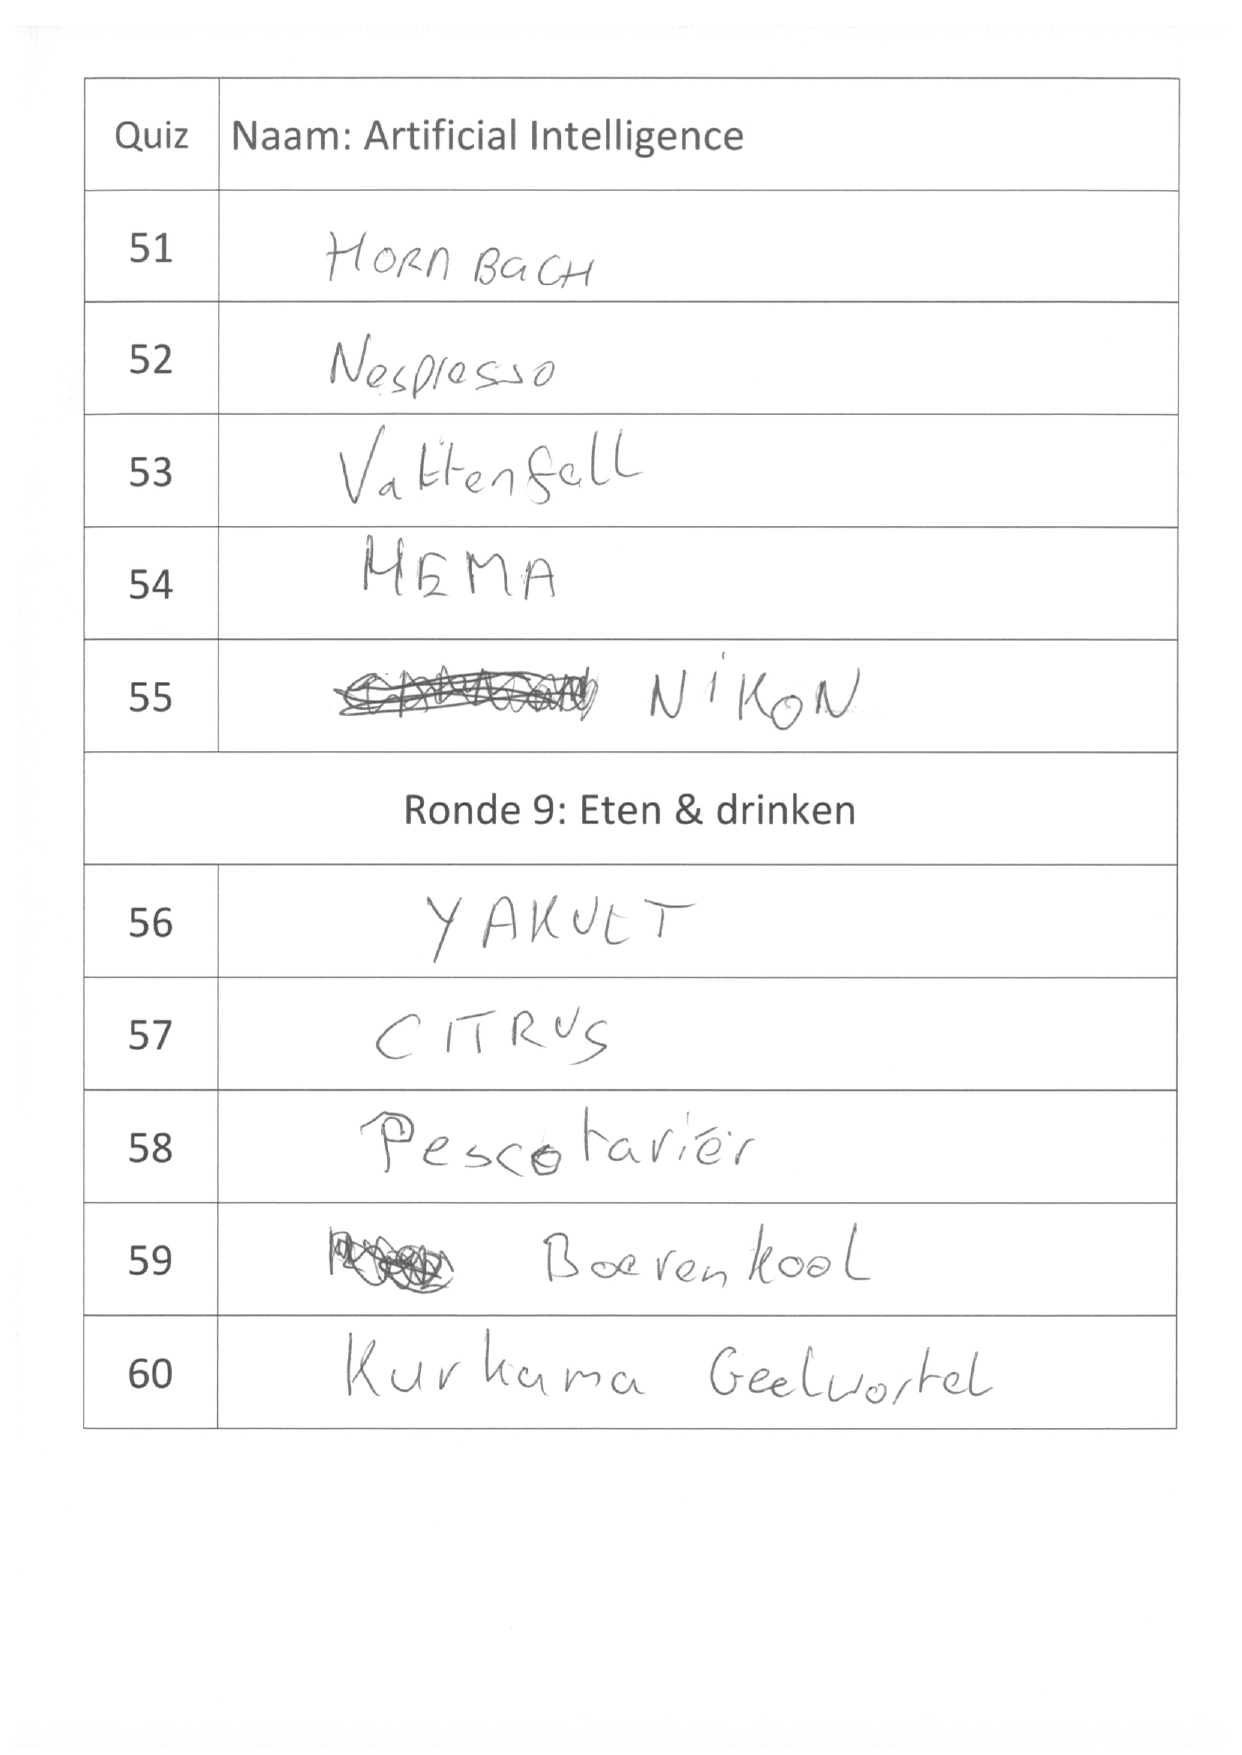 Quiz Naam: Artificial Intelligence
51 HORN BACH
52 Nespresso
53 Vattenfall
54 HEMA
55 NiKON
Ronde 9: Eten & drinken
56 YAKULT
57 CITRUS
58 Pescotariër
59 Boerenkool
60 Kurkama Geelwortel